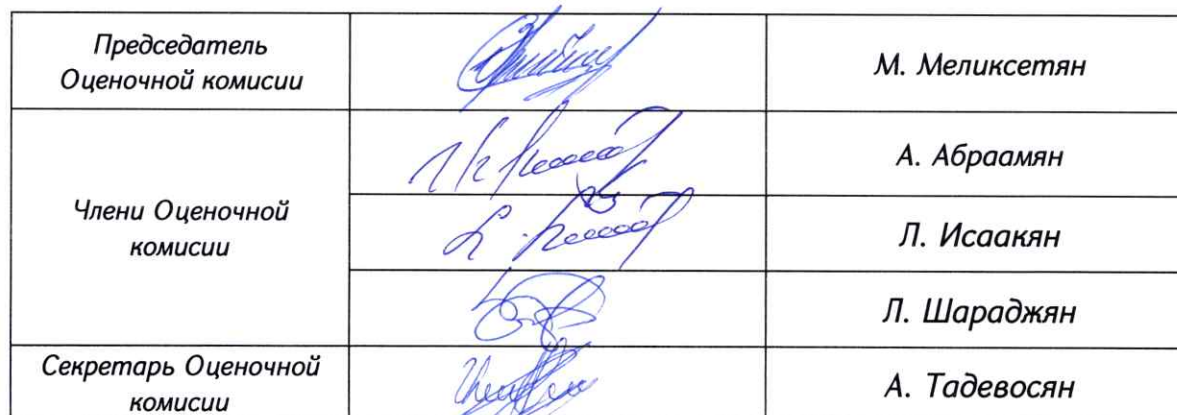 Председатель
Оценочной комисии
М. Меликсетян
Члени Оценочной
комисии
А. Абраамян
Л. Исаакян
Л. Шараджян
Секретарь Оценочной
комисии
А. Тадевосян